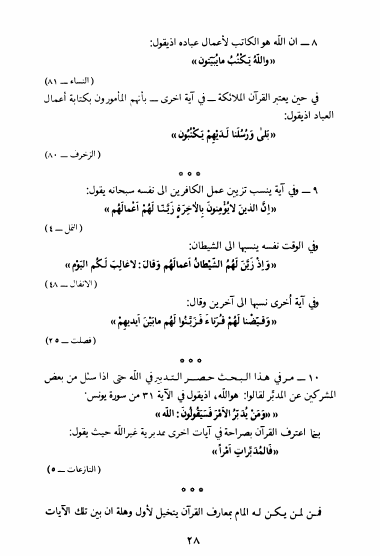 ٨ ــ ان الله هو الكاتب لأعمال عباده اذيقول:
«والله يَكْتُبُ مايُبَيّتون»
(النساء ــ ٨١)
في حين يعتبر القرآن الملائكة ــ في آية اخرى ــ بأنهم المأمورون بكتابة أعمال
العباد اذيقول:
«بَلىٰ وَرُسُلُنا لَـدَيْهِمْ يَكْتُبُون»
(الزخرف ــ ٨٠)
٥ ٥ ٥
٩ ــ وفي آية ينسب تزيين عمل الكافرين الى نفسه سبحانه يقول:
«اِنَّ الذينَ لايُؤْمِنونَ بِالآخِرَةِ زَيَّنا لَهُمْ أعْمالَهُم»
(النمل ــ ٤)
وفي الوقت نفسه ينسبها الى الشيطان:
«وَاِذْ زَيَّنَ لَهُمُ الشَّيْطانُ أعمالَهُم وَقالَ: لاغالِبَ لَـكُم اليَوْم»
(الانفال ــ ٤٨)
وفي آية أخرى نسبها الى آخرين وقال:
«وَقَيَّضْنا لَهُمْ قُرَناءَ فَزَيَّنُوا لَهُم مابَيْنَ أيديهِم»
(فصلت ــ ٢٥)
٥ ٥ ٥
١٠ ــ مـر في هـذا الـبحث حصـر الـتدبير في الله حتى اذا سئل من بعض
المشركين عن المدبّر لقالوا: هوالله، اذيقول في الآية ٣١ من سورة يونس:
«وَمَنْ يُدَبّرُ الأَمْرَ فَسَيَقُولُونَ: الله»
بينما اعترف القرآن بصراحة في آيات اخرى بمديرية غيرالله حيث يقول:
«فَالمُدَبِّراتِ اَمْراً»
(النازعات ــ ٥)
٥ ٥ ٥
فمـن لمـن يكـن لـه المام بمعارف القرآن يتخيل لأول وهلة ان بين تلك الآيات
٢٨